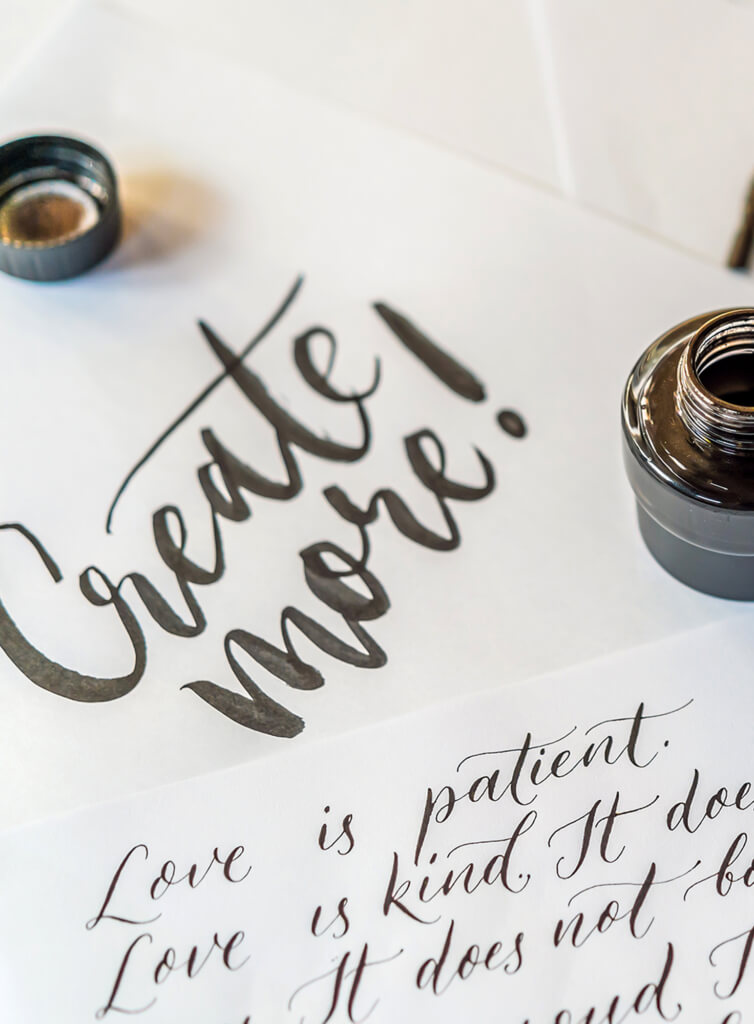 Create
more!
Love is patient.
Love is kind. It doe
It does not bo